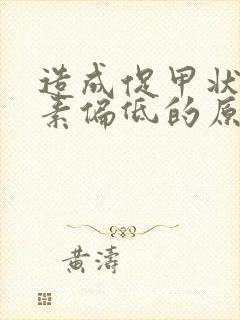 造成促甲状
素偏低的原
黄濤